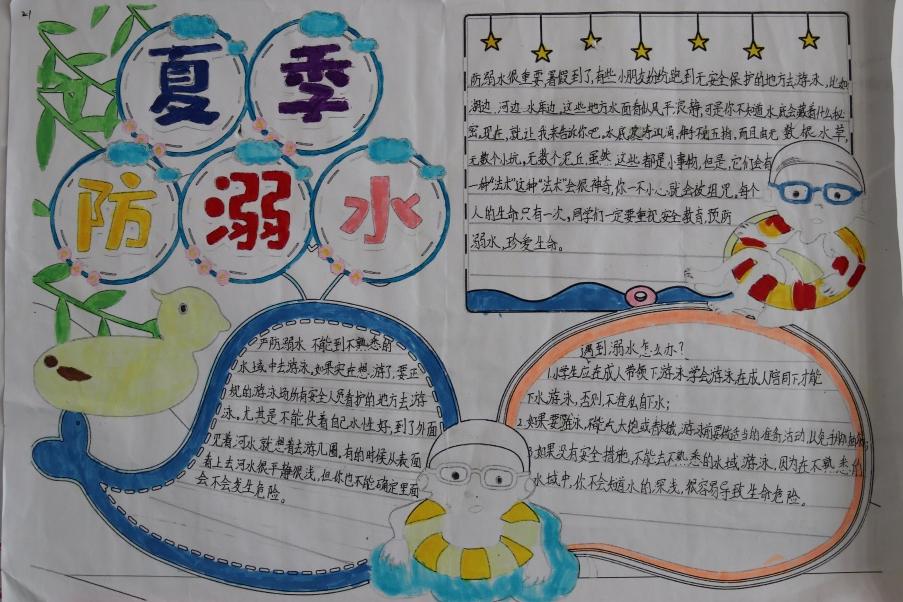 21
夏季
防溺水
防溺水很重要,暑假到了,有些小朋友纷纷跑到无安全保护的地方去游泳,比如
湖边、河边、水库边,这些地方水面看似风平浪静,可是你不知道水底会藏着什么秘
密,现在,就让我来告诉你吧,水底
而且由无数根水草,
无数个小坑,无数个泥丘虽然这些都是小事物,但是,它们会有
一种"法术"这种"法术"会很神奇,你一不小心就会被阻咒,每个
人的生命只有一次,同学们一定要重视安全教育,预防
溺水,珍爱生命。
严防溺水 不能到不熟悉的
水域中去游泳,如果实在想游了,要正
规的游泳场所有安全人员看护的地方去游
泳,尤其是不能仗着自己水性好,到了外面
见着河水就想着去游几圈,有的时候从表面
看上去河水很平静很浅,但你也不能确定里面
会不会发生危险。
遇到溺水怎么办?
1.小学生应在成人带领下游泳学会游泳在成人陪同下,才能
下水游泳,否则不准私自下水;
2.如果要游泳,游泳前要做适当的准备活动,以免
3.如果没有安全措施,不能去不熟悉的水域游泳,因为在不熟悉的
水域中,你不会知道水的深浅,很容易导致生命危险。